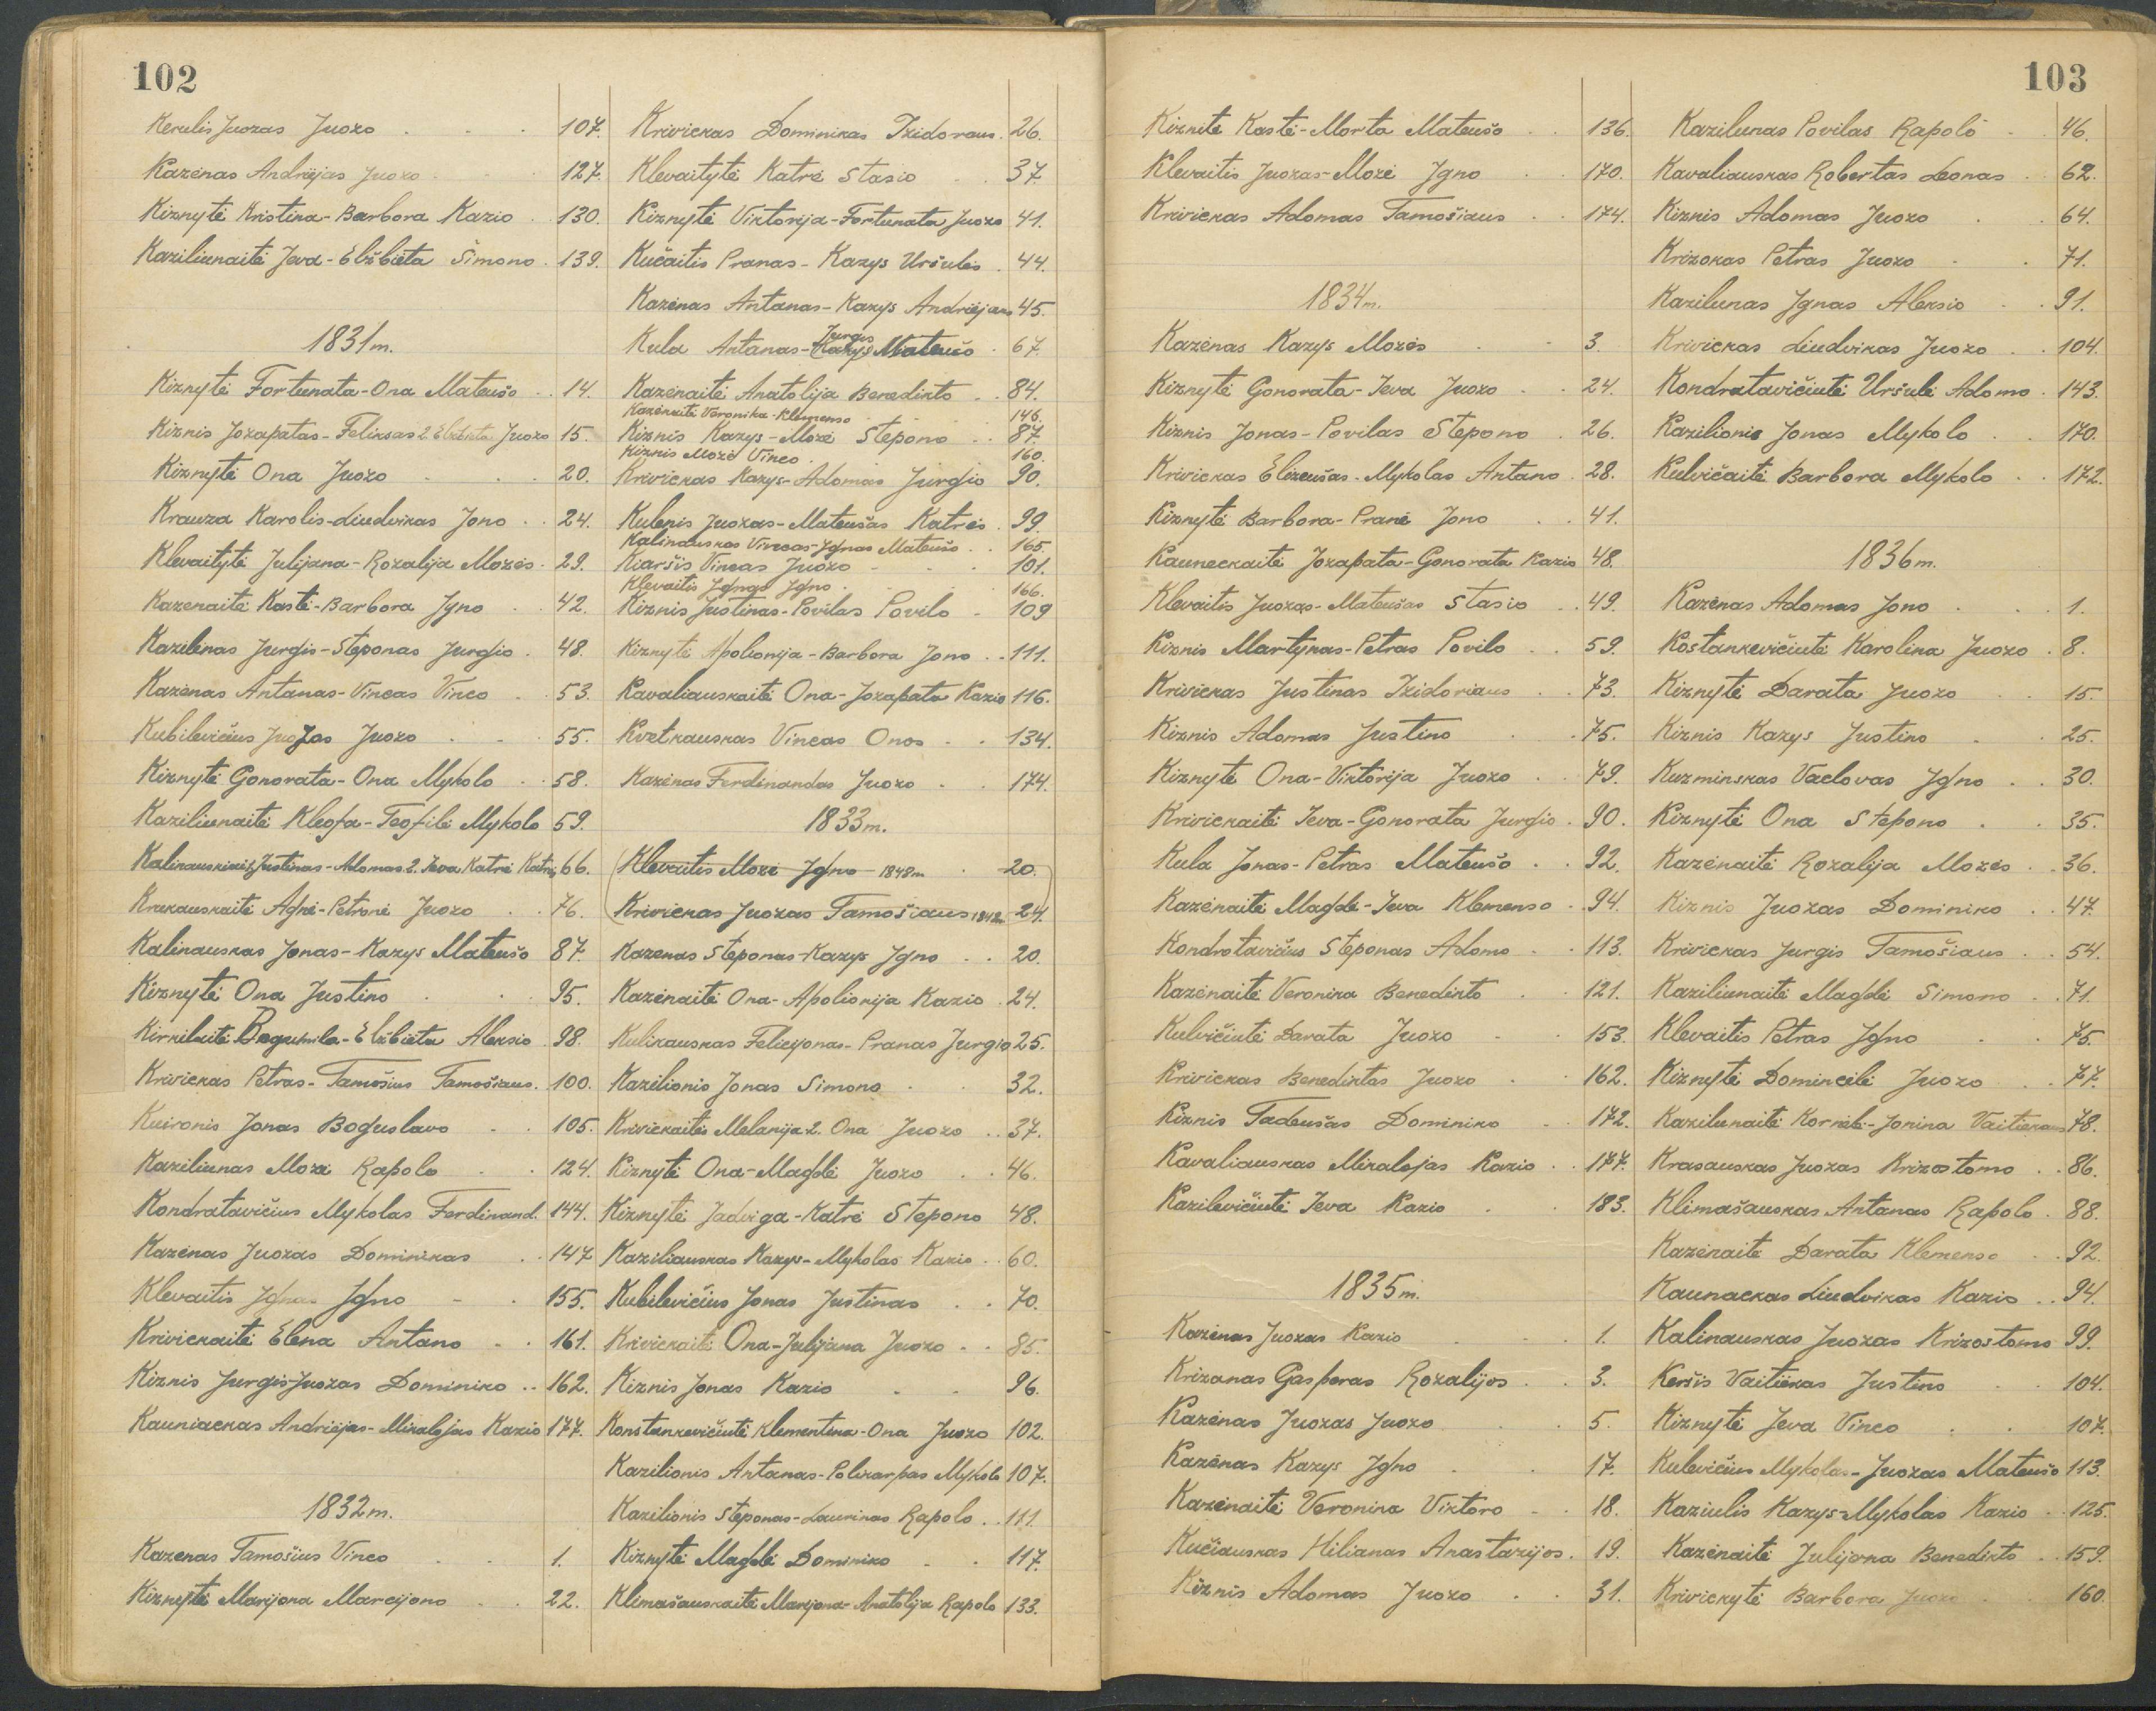 102
Kerulis Juozas Juozo . . . 107.
Kazėnas Andriejas Juozo . . . 127.
Kiznytė Kristina-Barbora Kazio . 130.
Kaziliunaitė Jeva-Elžbieta Simono . 139.
1831 m.
Kiznytė Fortunata-Ona Mateušo . . 14.
Kiznis Jozapatas-Feliksas 2. Elžbieta Juozo 15.
Kiznytė Ona Juozo . . . 20.
Krauza Karolis-Liudvikas Jono . . 24.
Klevaitytė Julijana-Rozalija Mozės . 29.
Kazenaitė Kastė-Barbora Jgno . . 42.
Kazilinas Jurgis-Steponas Jurgio . 48.
Kazėnas Antanas-Vincas Vinco . . 53.
Kubilevičius Juozas Juozo . . . 55.
Kiznytė Gonorata-Ona Mykolo . . 58.
Kaziliunaitė Kleofa-Teofilė Mykolo 59.
Justinas-Adomas 2. Jeva Katrė Katrės 66.
Krukauskaitė Agnė-Petronė Juozo . . 76.
Kalinauskas Jonas-Kazys Mateušo 87.
Kiznytė Ona Justino . . . 95.
Bogumila-Elžbieta Aleksio . 98.
Krivickas Petras-Tamošius Tamošiaus . 100.
Kuironis Jonas Boguslavo . . 105.
Kaziliunas Mozė Rapolo . . 124.
Kondratavičius Mykolas Ferdinand. 144.
Kazėnas Juozas Dominikas . . 147.
Klevaitis Jgnas Jgno - . 155.
Krivickaitė Elena Antano . . 161.
Kiznis Jurgis-Juozas Dominiko . . 162.
Kauniackas Andriejas-Mikalojas Kazio 177.
1832 m.
Kazenas Tamošius Vinco . . 1.
Kiznytė Marijona Marcijono . . 22.
Krivickas Dominikas Izidoraus . 26.
Klevaitytė Katrė Stasio . . 37.
Kiznytė Viktorija-Fortunata Juozo 41.
Kučaitis Pranas-Kazys Uršulės . 44.
Kazėnas Antanas-Kazys Andriejaus 45.
Jurgis
Kula Antanas-(Kazys) Mateušo . 67.
Kazėnaitė Anatolija Benedikto . . 84.
Kazėnaitė Veronika-Klemenso . . 146.
Kiznis Kazys-Mozė Stepono . . 87.
Kiznis Mozė Vinco . . 160.
Krivickas Kazys-Adomas Jurgio 90.
Kulenis Juozas-Mateušas Katrės . 99.
Kalinauskas Vincas-Jgnas Mateušo . . 165.
Kiaršis Vincas Juozo - . . 101.
Klevaitis Jgnas Jgno . . . 166.
Kiznis Justinas-Povilas Povilo . 109
Kiznytė Apolionija-Barbora Jono . . 111.
Kavaliauskaitė Ona-Jozapata Kazio 116.
Kvetkauskas Vincas Onos . . 134.
Kazėnas Ferdinandas Juozo . . 174.
1833 m.
Klevaitis Mozė Jgno - 1848 m . 20.
Krivickas Juozas Tamošiaus 1848 m. 24.
Kazenas Steponas-Kazys Jgno . . 20.
Kazėnaitė Ona-Apolionija Kazio . 24.
Kulikauskas Felicijonas-Pranas Jurgio 25.
Kazilionis Jonas Simono . . 32.
Krivickaitės Melanija 2. Ona Juozo . . 37.
Kiznytė Ona-Magdė Juozo . . 46.
Kiznytė Jadviga-Katrė Stepono 48.
Kaziliauskas Kazys-Mykolas Kazio . . 60.
Kubilevičius Jonas Justinas . . 70.
Krivickaitė Ona-Julijana Juozo . . 85.
Kiznis Jonas Kazio . . 96.
Konstankevičiutė Klementina-Ona Juozo 102.
Kazilionis Antanas-Polikarpas Mykolo 107.
Kazilionis Steponas-Laurinas Rapolo . . 111.
Kiznytė Magdė Dominiko . . 117.
Klimašauskaitė Marijona-Anatolija Rapolo 133.
103
Kiznitė Kastė-Morta Mateušo . . 136.
Klevaitis Juozas-Mozė Jgno . . 170.
Krivickas Adomas Tamošiaus . . 174.
1834 m.
Kazėnas Kazys Mozės . . 3.
Kiznytė Gonorata-Ieva Juozo . . 24.
Kiznis Jonas-Povilas Stepono . 26.
Krivickas Elizeušas-Mykolas Antano . 28.
Kiznytė Barbora-Pranė Jono . . 41.
Kauneckaitė Jozapata-Gonorata Kazio 48.
Klevaitis Juozas-Mateušas Stasio . . 49.
Kiznis Martynas-Petras Povilo . . 59.
Krivickas Justinas Izidoriaus . . 73.
Kiznis Adomas Justino . . 75.
Kiznytė Ona-Viktorija Juozo . . 79.
Krivickaitė Ieva-Gonorata Jurgio . 90.
Kula Jonas-Petras Mateušo . . 92.
Kazėnaitė Magdė-Ieva Klemenso . 94.
Kondrotavičius Steponas Adomo . . 113.
Kazėnaitė Veronika Benedikto . . 121.
Kulvičiutė Darata Juozo . . 153.
Krivickas Benediktas Juozo . . 162.
Kiznis Tadeušas Dominiko . . 172.
Kavaliauskas Mikalojas Kazio . . 177.
Kazilevičiutė Ieva Kazio . . 183.
1835 m.
Kazėnas Juozas Kazio . . . 1.
Krizanas Gasparas Rozalijos . . 3.
Kazėnas Juozas Juozo . . 5.
Kazėnas Kazys Jgno . . 17.
Kazėnaitė Veronika Viktoro . . 18.
Kučiauskas Hilianas Anastazijos . 19.
Kiznis Adomas Juozo . . 31.
Kazilunas Povilas Rapolo . . 46.
Kavaliauskas Robertas Leonas . . 62.
Kiznis Adomas Juozo . . 64.
Krizokas Petras Juozo . . 71.
Kazilunas Jgnas Aleksio . . 91.
Krivickas Liudvikas Juozo . . 104.
Kondratavičiutė Uršulė Adomo . 143.
Kazilionis Jonas Mykolo . . 170.
Kulvičaitė Barbora Mykolo . . 172.
1836 m.
Kazėnas Adomas Jono . . . 1.
Kostankevičiutė Karolina Juozo . 8.
Kiznytė Darata Juozo . . 15.
Kiznis Kazys Justino . . 25.
Kuzminskas Vaclovas Jgno . . 30.
Kiznytė Ona Stepono . . 35.
Kazėnaitė Rozalija Mozės . . 36.
Kiznis Juozas Dominiko . . 47.
Krivickas Jurgis Tamošiaus . . 54.
Kaziliunaitė Magdė Simono . . 71.
Klevaitis Petras Jgno . . 75.
Kiznytė Domincėlė Juozo . . 77.
Kazilunaitė Kornelė-Jonina Vaitiekaus 78.
Krasauskas Juozas Krizostomo . . 86.
Klimašauskas Antanas Rapolo . 88.
Kazėnaitė Darata Klemenso . . 92.
Kaunackas Liudvikas Kazio . . 94.
Kalinauskas Juozas Krizostomo 99.
Keršis Vaitiekas Justino . . 104.
Kiznytė Jeva Vinco . . 107.
Kulevičius Mykolas-Juozas Mateušo 113.
Kaziulis Kazys-Mykolas Kazio . . 125.
Kazėnaitė Julijona Benedikto . . 159.
Krivickytė Barbora Juozo . . 160.